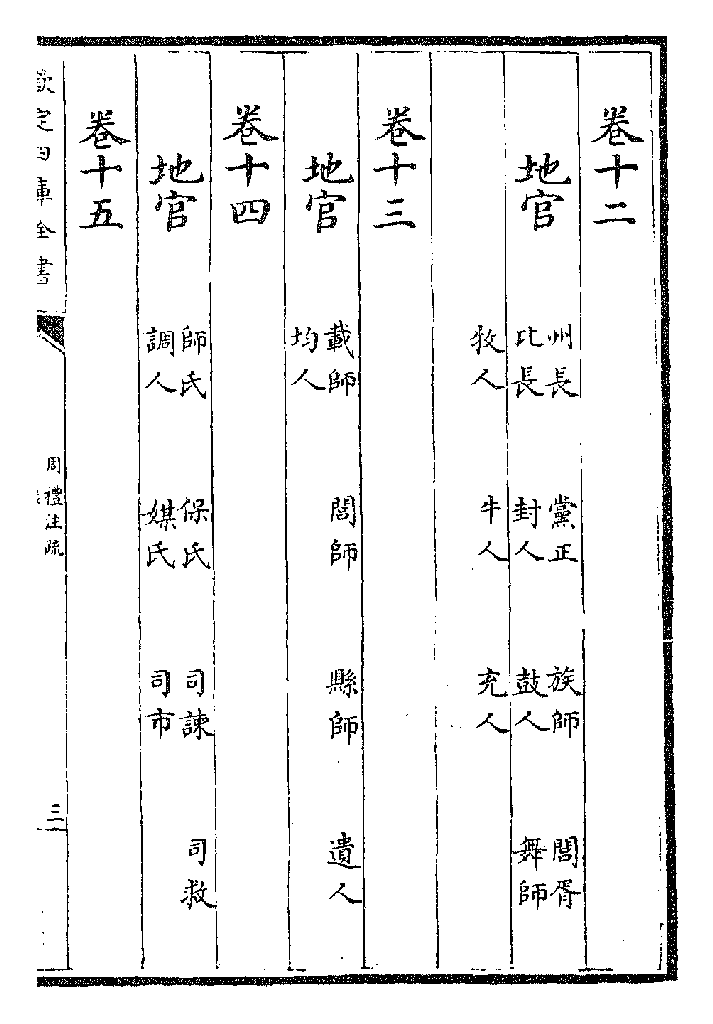 卷十二
地官
州長 黨正 族師 閭胥
比長 封人 鼓人 舞師
牧人 牛人 充人
卷十三
地官
載師 閭師 縣師 遺人
均人
卷十四
地官
師氏 保氏 司諫 司救
調人 媒氏 司市
卷十五
欽定四庫全書
周禮注疏
三